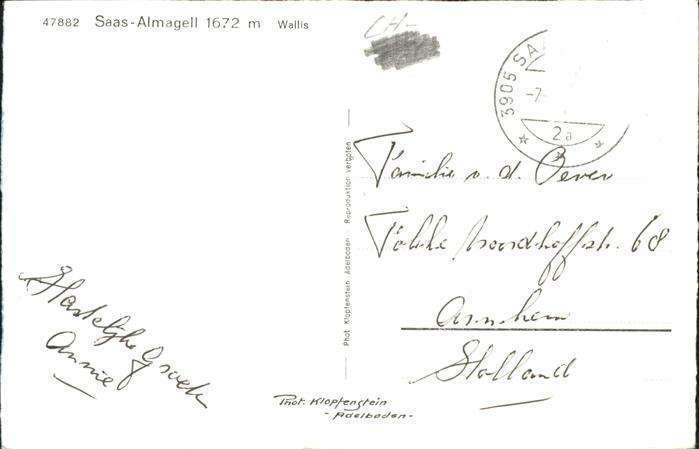 47882 Saas-Almagell 1672 m Wallis
CH-
3905 SA
-7-
2a
Familie v. d. Beven
68
Arnhem
Holland
Hartelijke Groeten
Annie
Phot. Klopfenstein Adelboden Reproduktion verboten
Phot. Klopfenstein
- Adelboden -